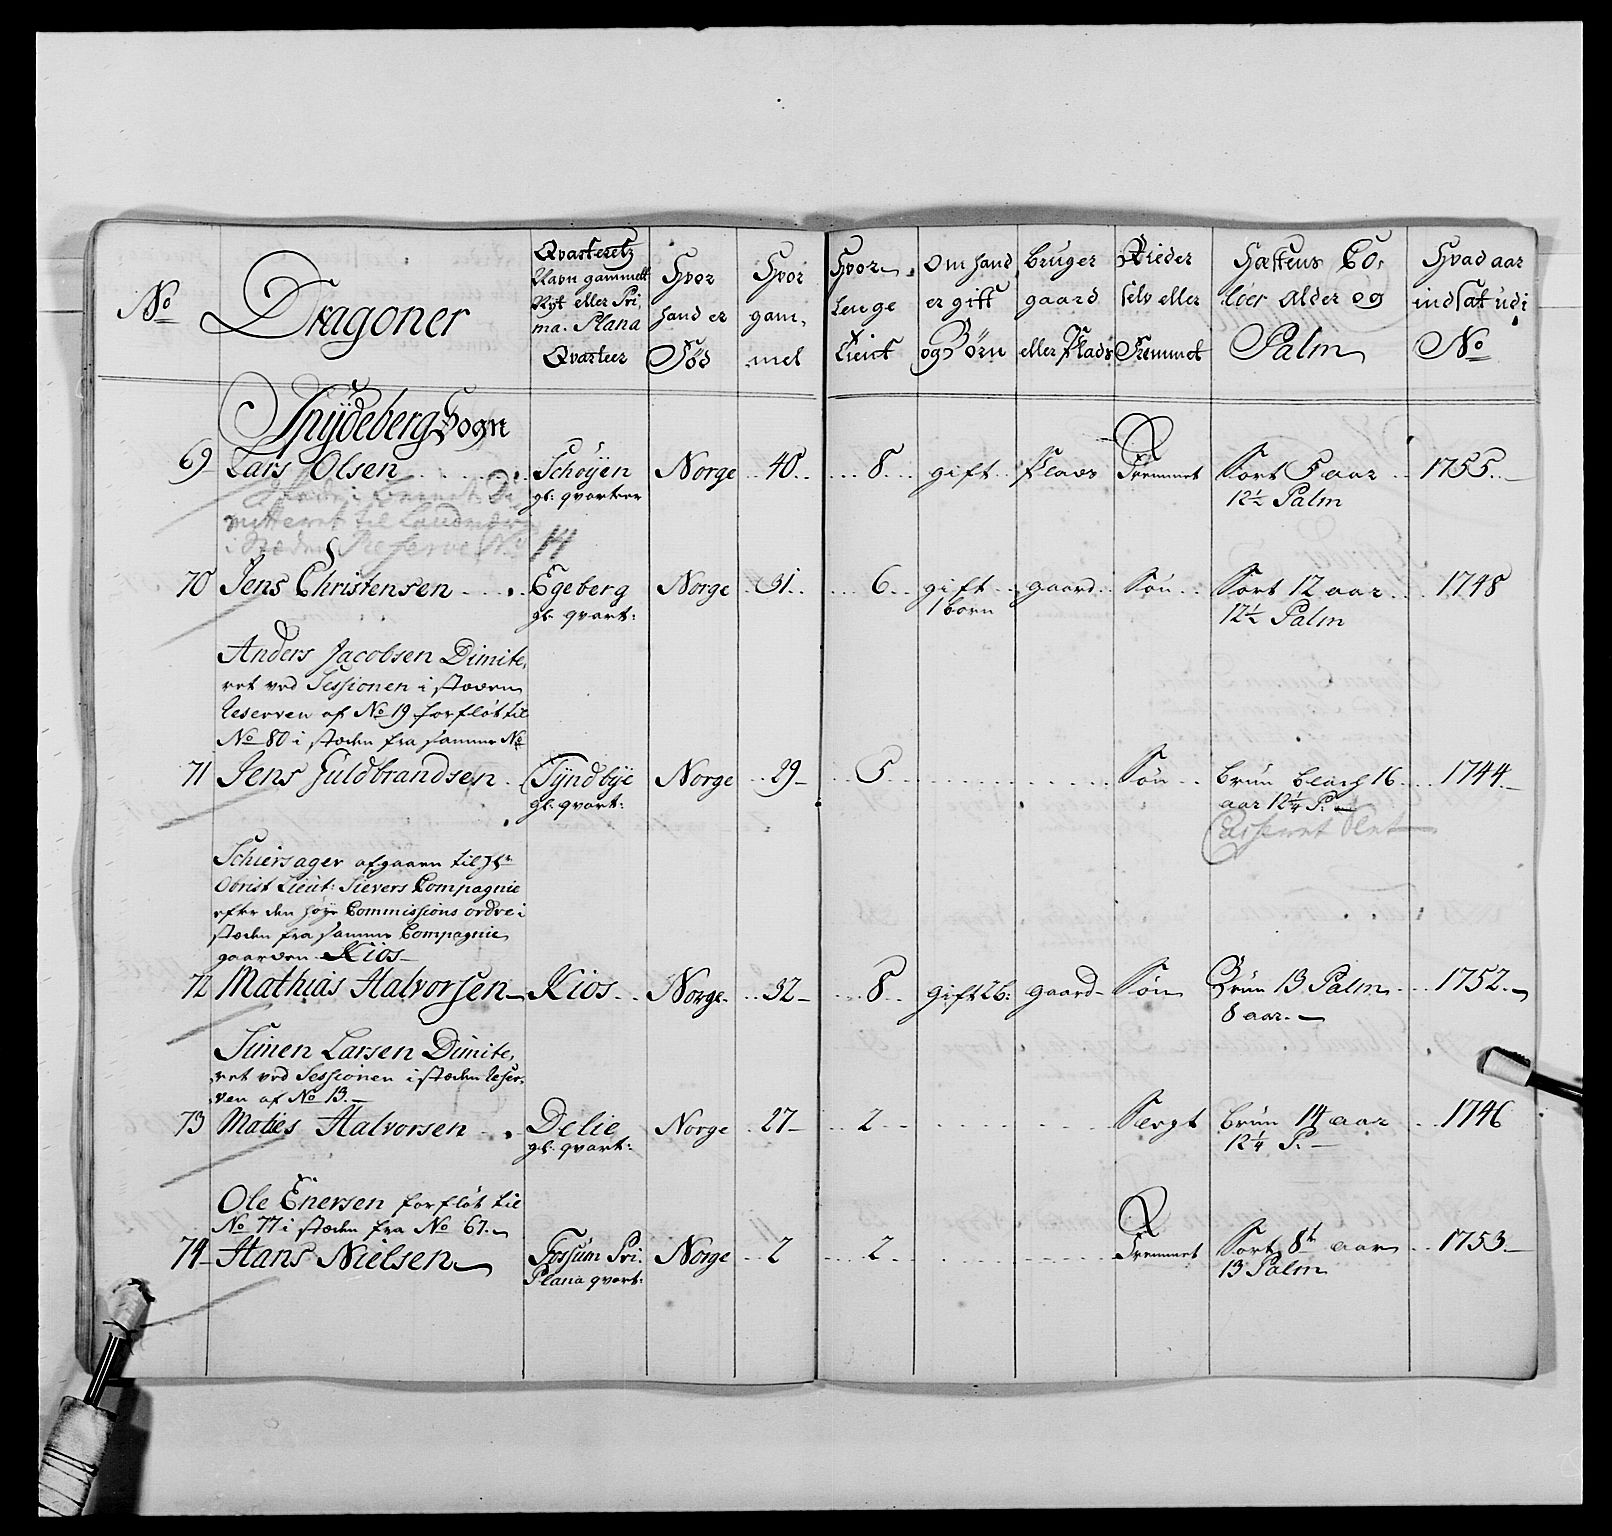 No Dragoner
Qvarteretz Navn gammelt Nyt eller Pri, ma. Plana Qvarteer
Hvor hand er Fød
Hvor gam, mel
Hvor lenge tient
Om hand er gift og Børn
bruger gaard eller Plads
Rieder selv eller Fremmet
Hæstens Co, løer alder og Palm
Hvad aar indsat udi No
Spydeberg Sogn
69 Lars Olsen Schøyen Norge 40 8 gift Plads Fremmet Sort 5 aar 1755
gl: qvarteer 12½ Palm
mitteret til Landvær
i Stæden Reserve No 14
70 Jens Christensen Egeberg Norge 31 6 gift gaard Søn Sort 12 aar 1748
gl: qvart: 1 børn 12½ Palm
Anders Jacobsen Dimite,
ret ved Sessionen i stæden
Reserven af No 19 forfløt til
No 80 i stæden fra samme No
71 Jens Guldbrandsen Tyndbye Norge 29 5 Søn brun bleiset 16 1744
gl: qvart: aar 12¼ P:
Casseret
Schiersager afgaaen til Hr
Obrist Lieut: Sievers Compagnie
efter den høye Commissions ordre i
stæden fra samme Compagnie
gaarden Kios
72 Mathias Halvorsen Kios Norge 32 8 gift 2 b: gaard Søn Brun 13 Palm 1752
8 aar
Simen Larsen Dimite,
ret ved Sessionen i stæden Reser,
ven af No 13
73 Maties Halvorsen Delie Norge 27 2 Sergt brun 14 aar 1746
gl: qvart: 12¼ P:
Ole Enersen forfløt til
No 77 i stæden fra No 67
74 Hans Nielsen Fossum Pri: Norge 2 2 Fremmet Sort 8t aar 1753
Plana qvart: 13 Palm